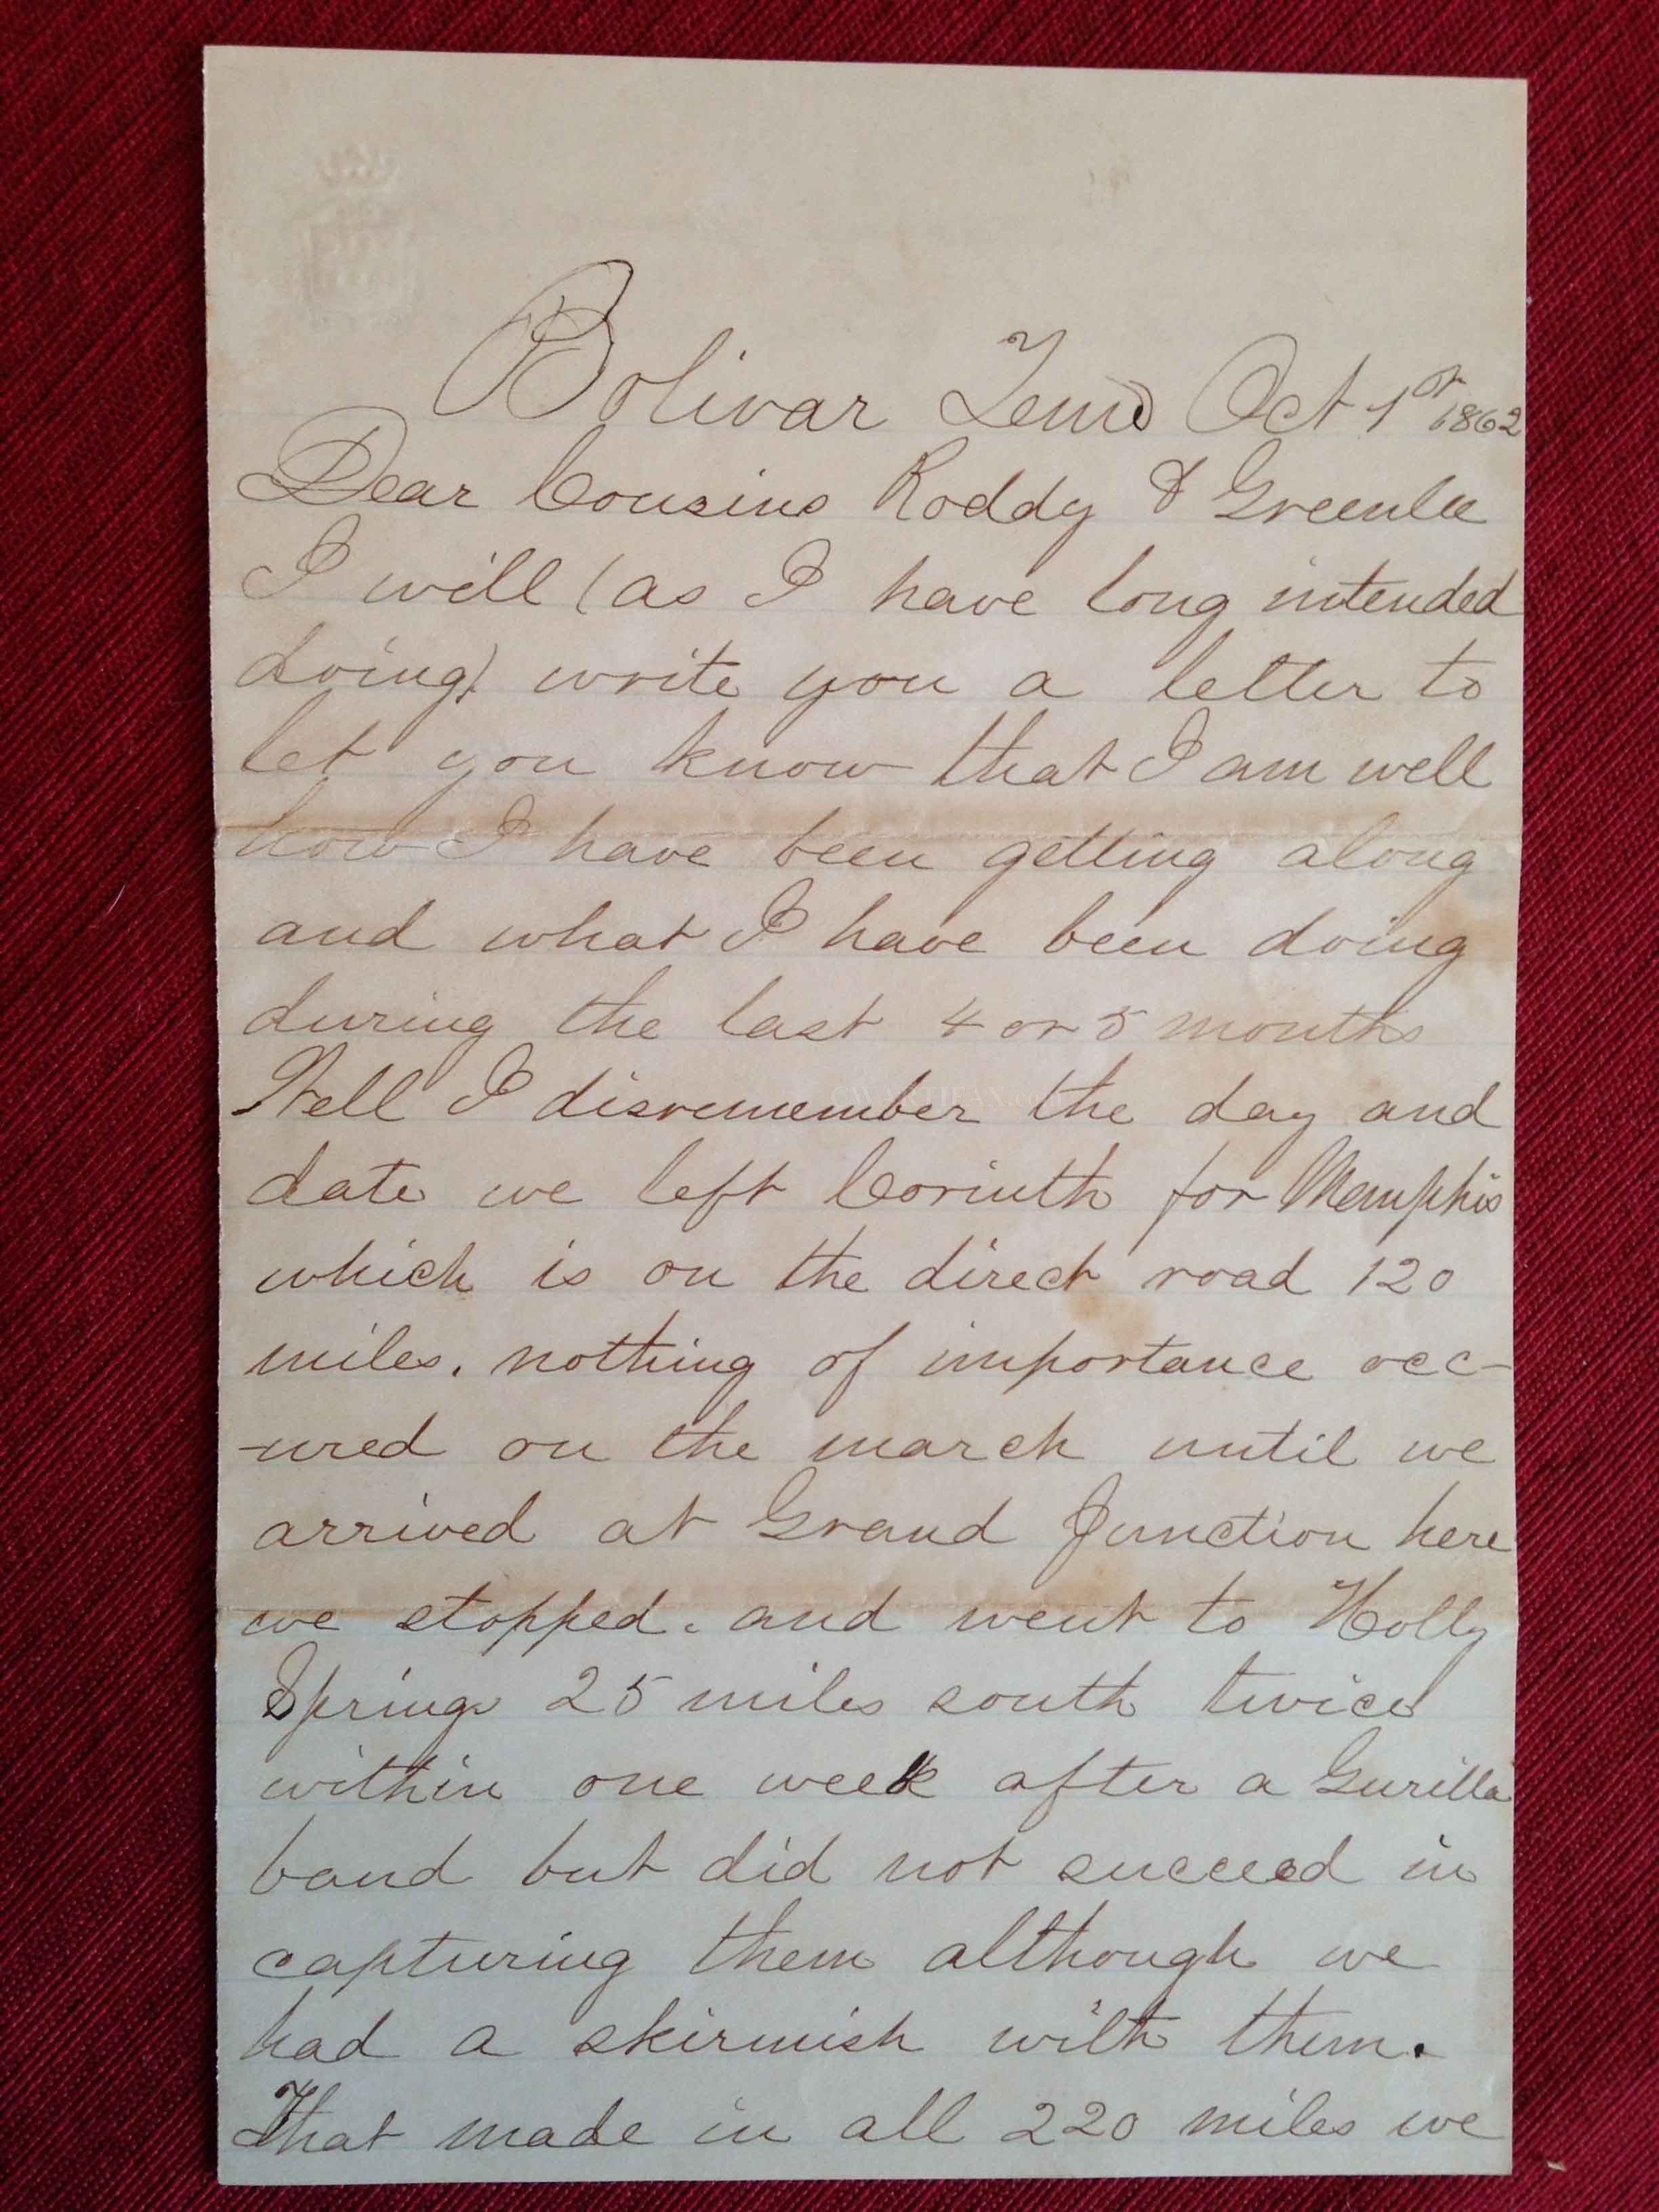 Bolivar Tenn Oct 1st 1862
Dear Cousins Roddy & Greenlee
I will (as I have long intended
doing) write you a letter to
let you know that I am well
how I have been getting along
and what I have been doing
during the last 4 or 5 months
Well I disremember the day and
date we left Corinth for Memphis
which is on the direct road 120
miles. nothing of importance occ-
-ured on the march until we
arrived at Grand Junction here
we stopped. and went to Holly
Springs 25 miles south twice
within one week after a Gurilla
band but did not succeed in
capturing them although we
had a skirmish with them.
That made in all 220 miles we